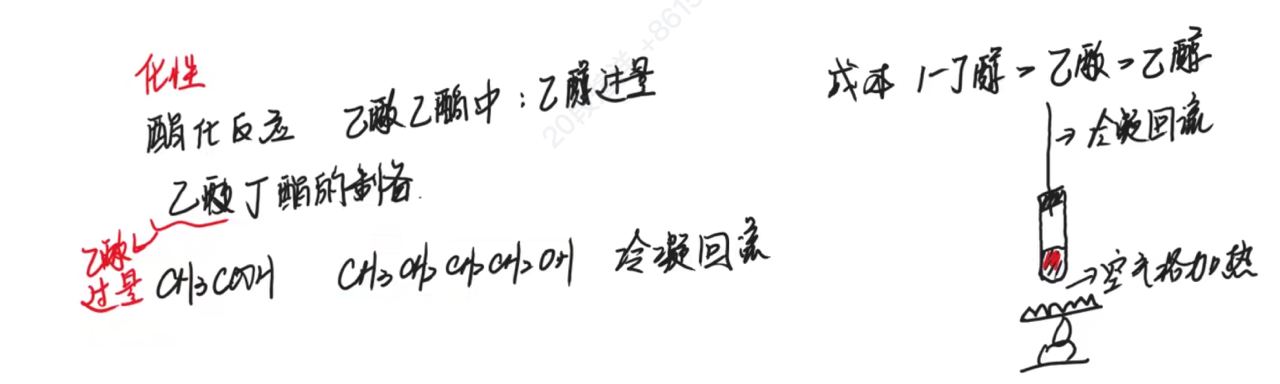 化性
酯化反应 乙酸乙酯中：乙醇过量
乙酸丁酯的制备.
乙酸
过量
CH3COOH CH3CH2CH2CH2OH 冷凝回流
成本 1-丁醇>乙酸>乙醇
→冷凝回流
→空气浴加热